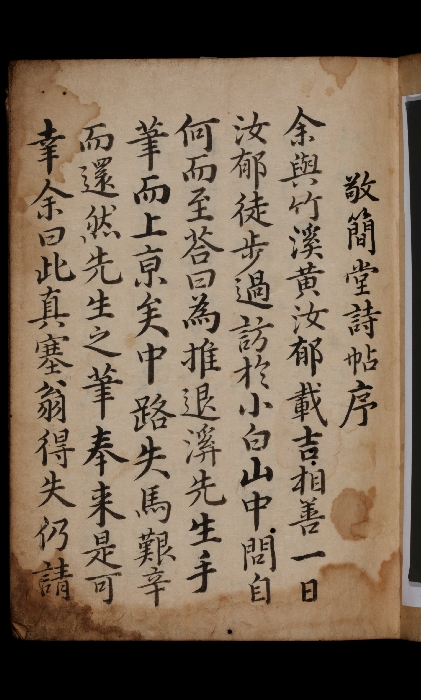 敬簡堂詩帖序
余與竹溪黃汝郁載吉相善一日
汝郁徒步過訪於小白山中問自
何而至荅曰為推退溪先生手
筆而上京矣中路失馬艱辛
而還然先生之筆奉来是可
幸余曰此真塞翁得失仍請